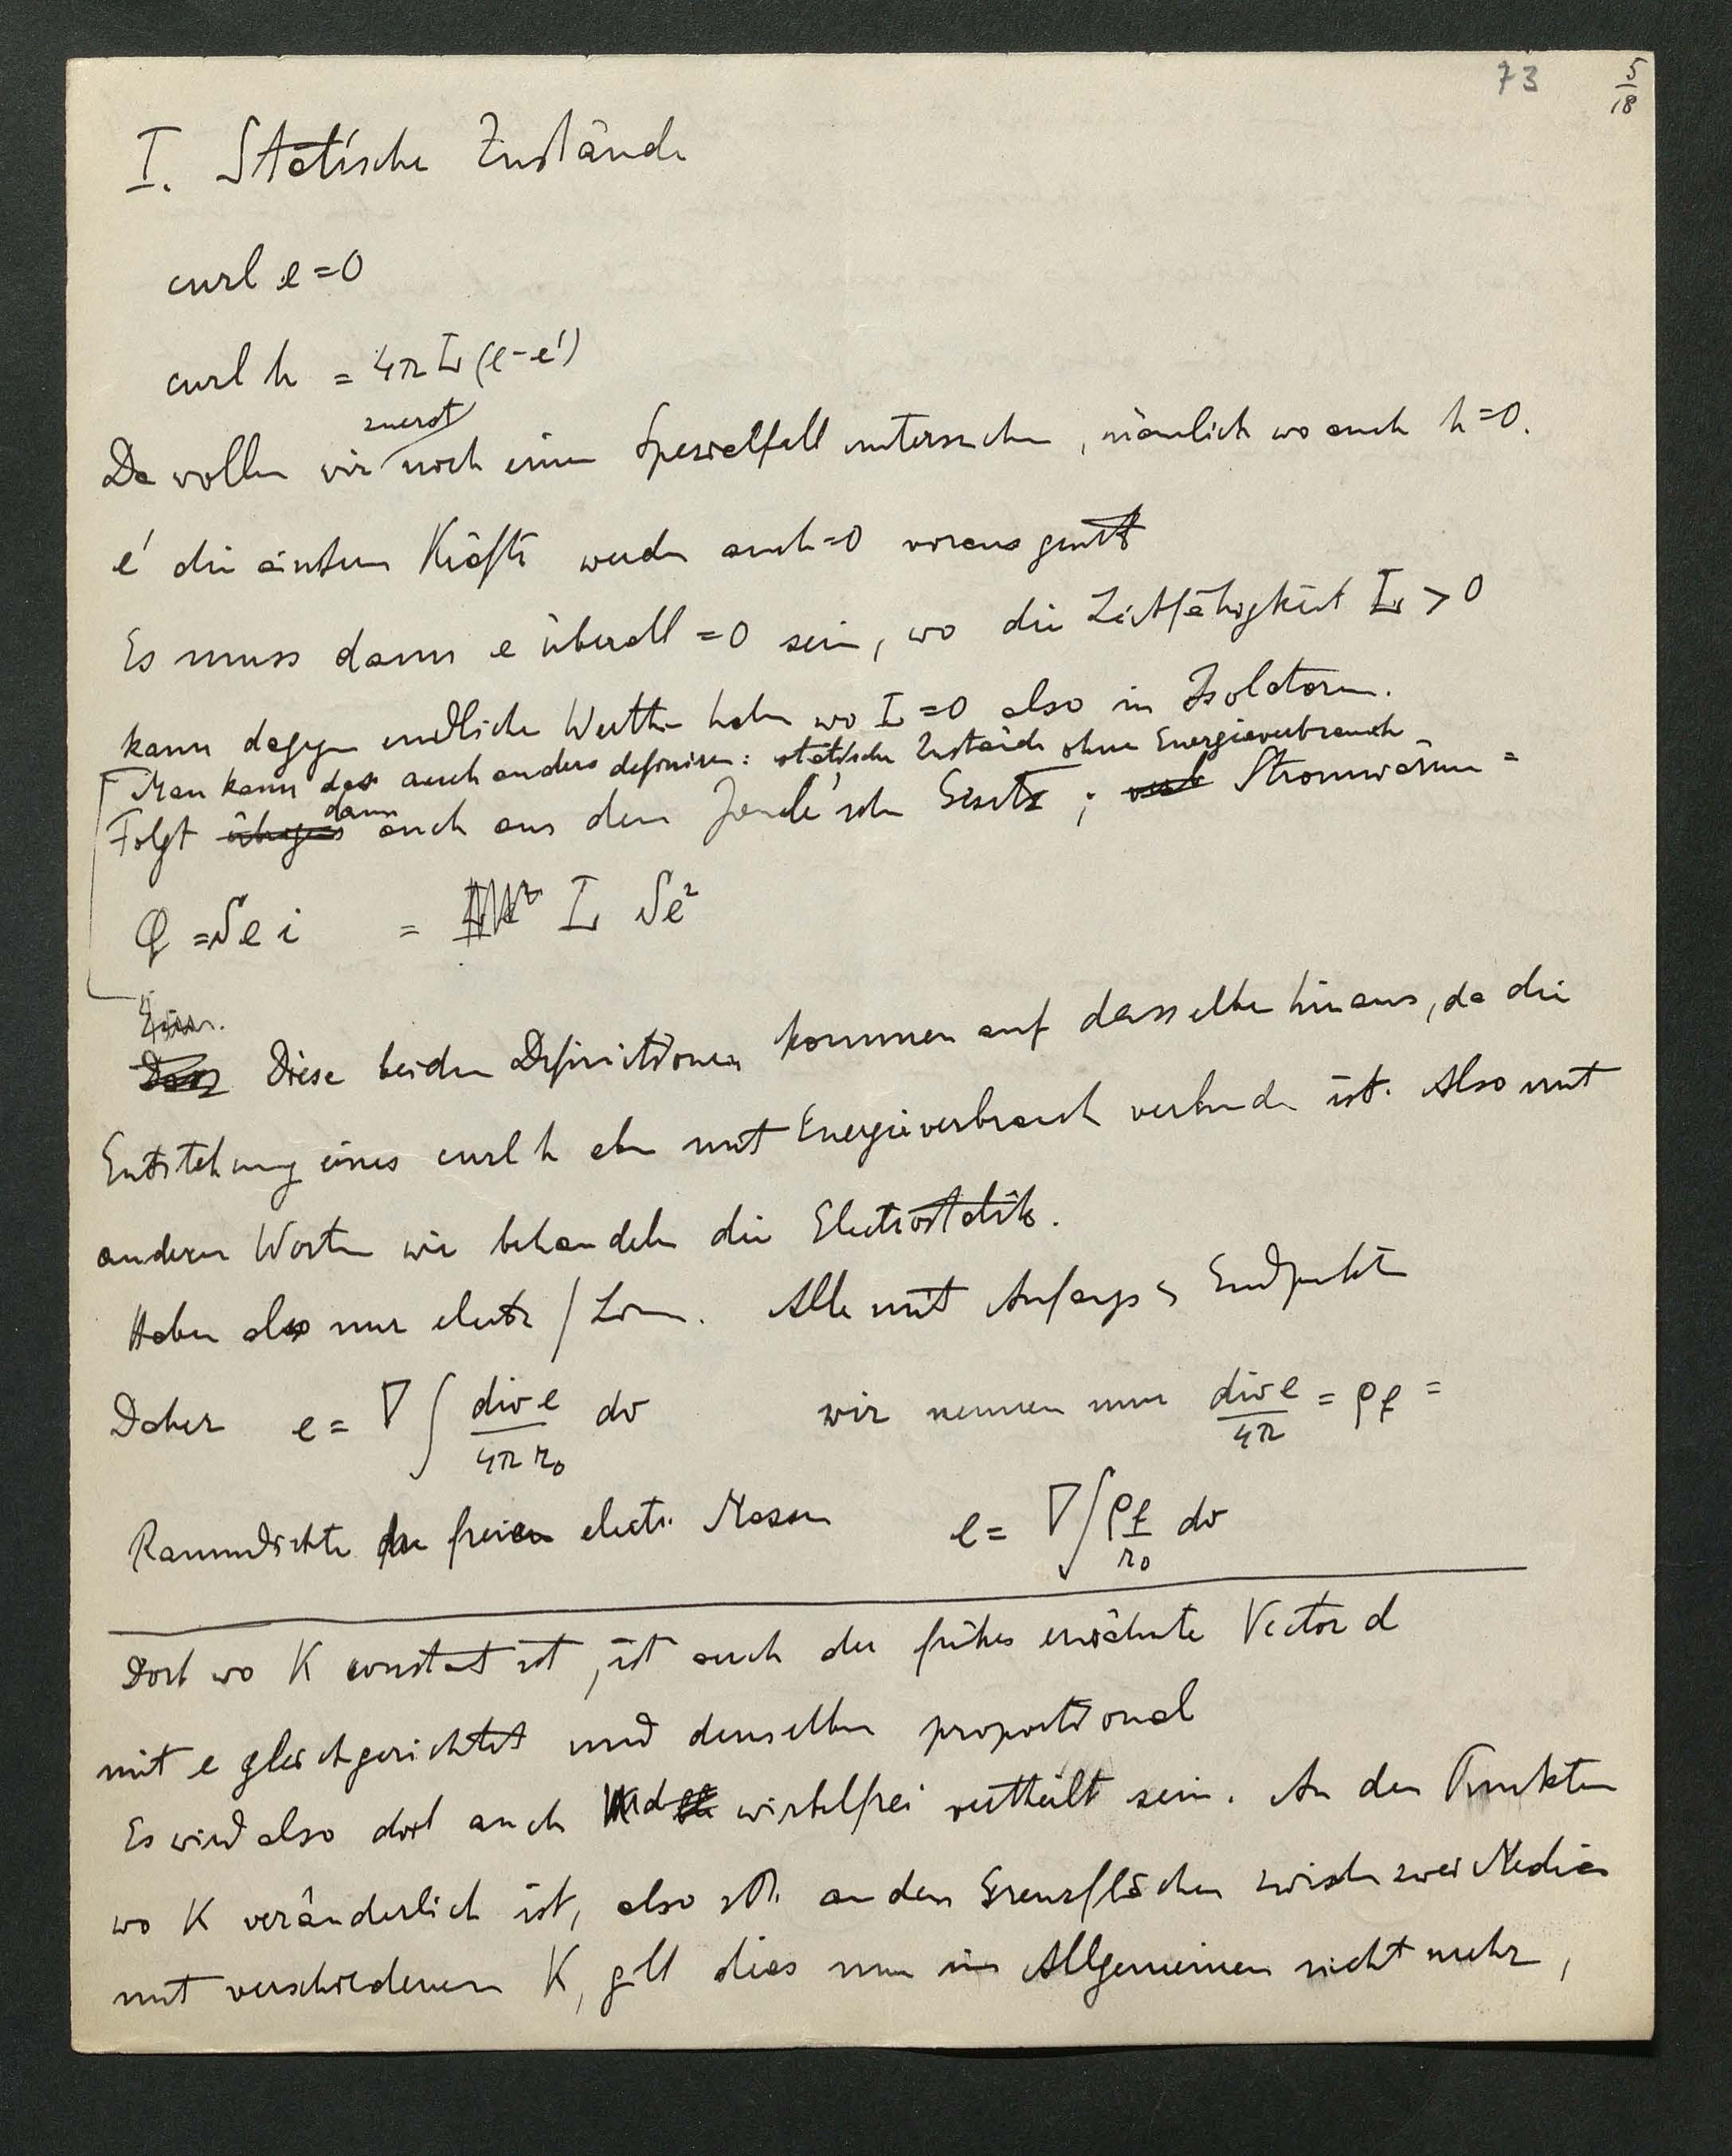 73
5/18
I. Statische Zustände
curl e = 0
curl h = 4π L (e - e')
zuerst
Da wollen wir noch einen Spezialfall untersuchen, nämlich wo auch h = 0.
e' die äussern Kräfte werden auch = 0 vorausgesetzt
Es muss dann e überall = 0 sein, wo die Leitfähigkeit L > 0
kann dagegen endliche Werthe haben wo L = 0 also in Isolatoren.
Man kann das auch anders definiren: statische Zustände ohne Energieverbrauch
dann
Folgt übrigens auch aus dem Joule'schen Gesetz; Stromwärme =
Q = S e i = L S e²
Diese beiden Definitionen kommen auf dasselbe hinaus, da die
Entstehung eines curl h eben mit Energieverbrauch verbunden ist. Also mit
anderen Worten wir behandeln die Electrostatik.
Haben also nur electr / Lin. Alle mit Anfangs & Endpunkten
Daher e = ∇ ∫ div e / 4π r₀ dv wir nennen nun div e / 4π = ρ_f =
Raumdichte der freien electr. Massen e = ∇ ∫ ρ_f / r₀ dv
Dort wo K constant ist, ist auch der früher erwähnte Vector d
mit e gleichgerichtet und demselben proportional
Es wird also dort auch d wirbelfrei vertheilt sein. An den Punkten
wo K veränderlich ist, also an den Grenzflächen zwischen zwei Medien
mit verschiedenem K, gilt dies nun im Allgemeinen nicht mehr,